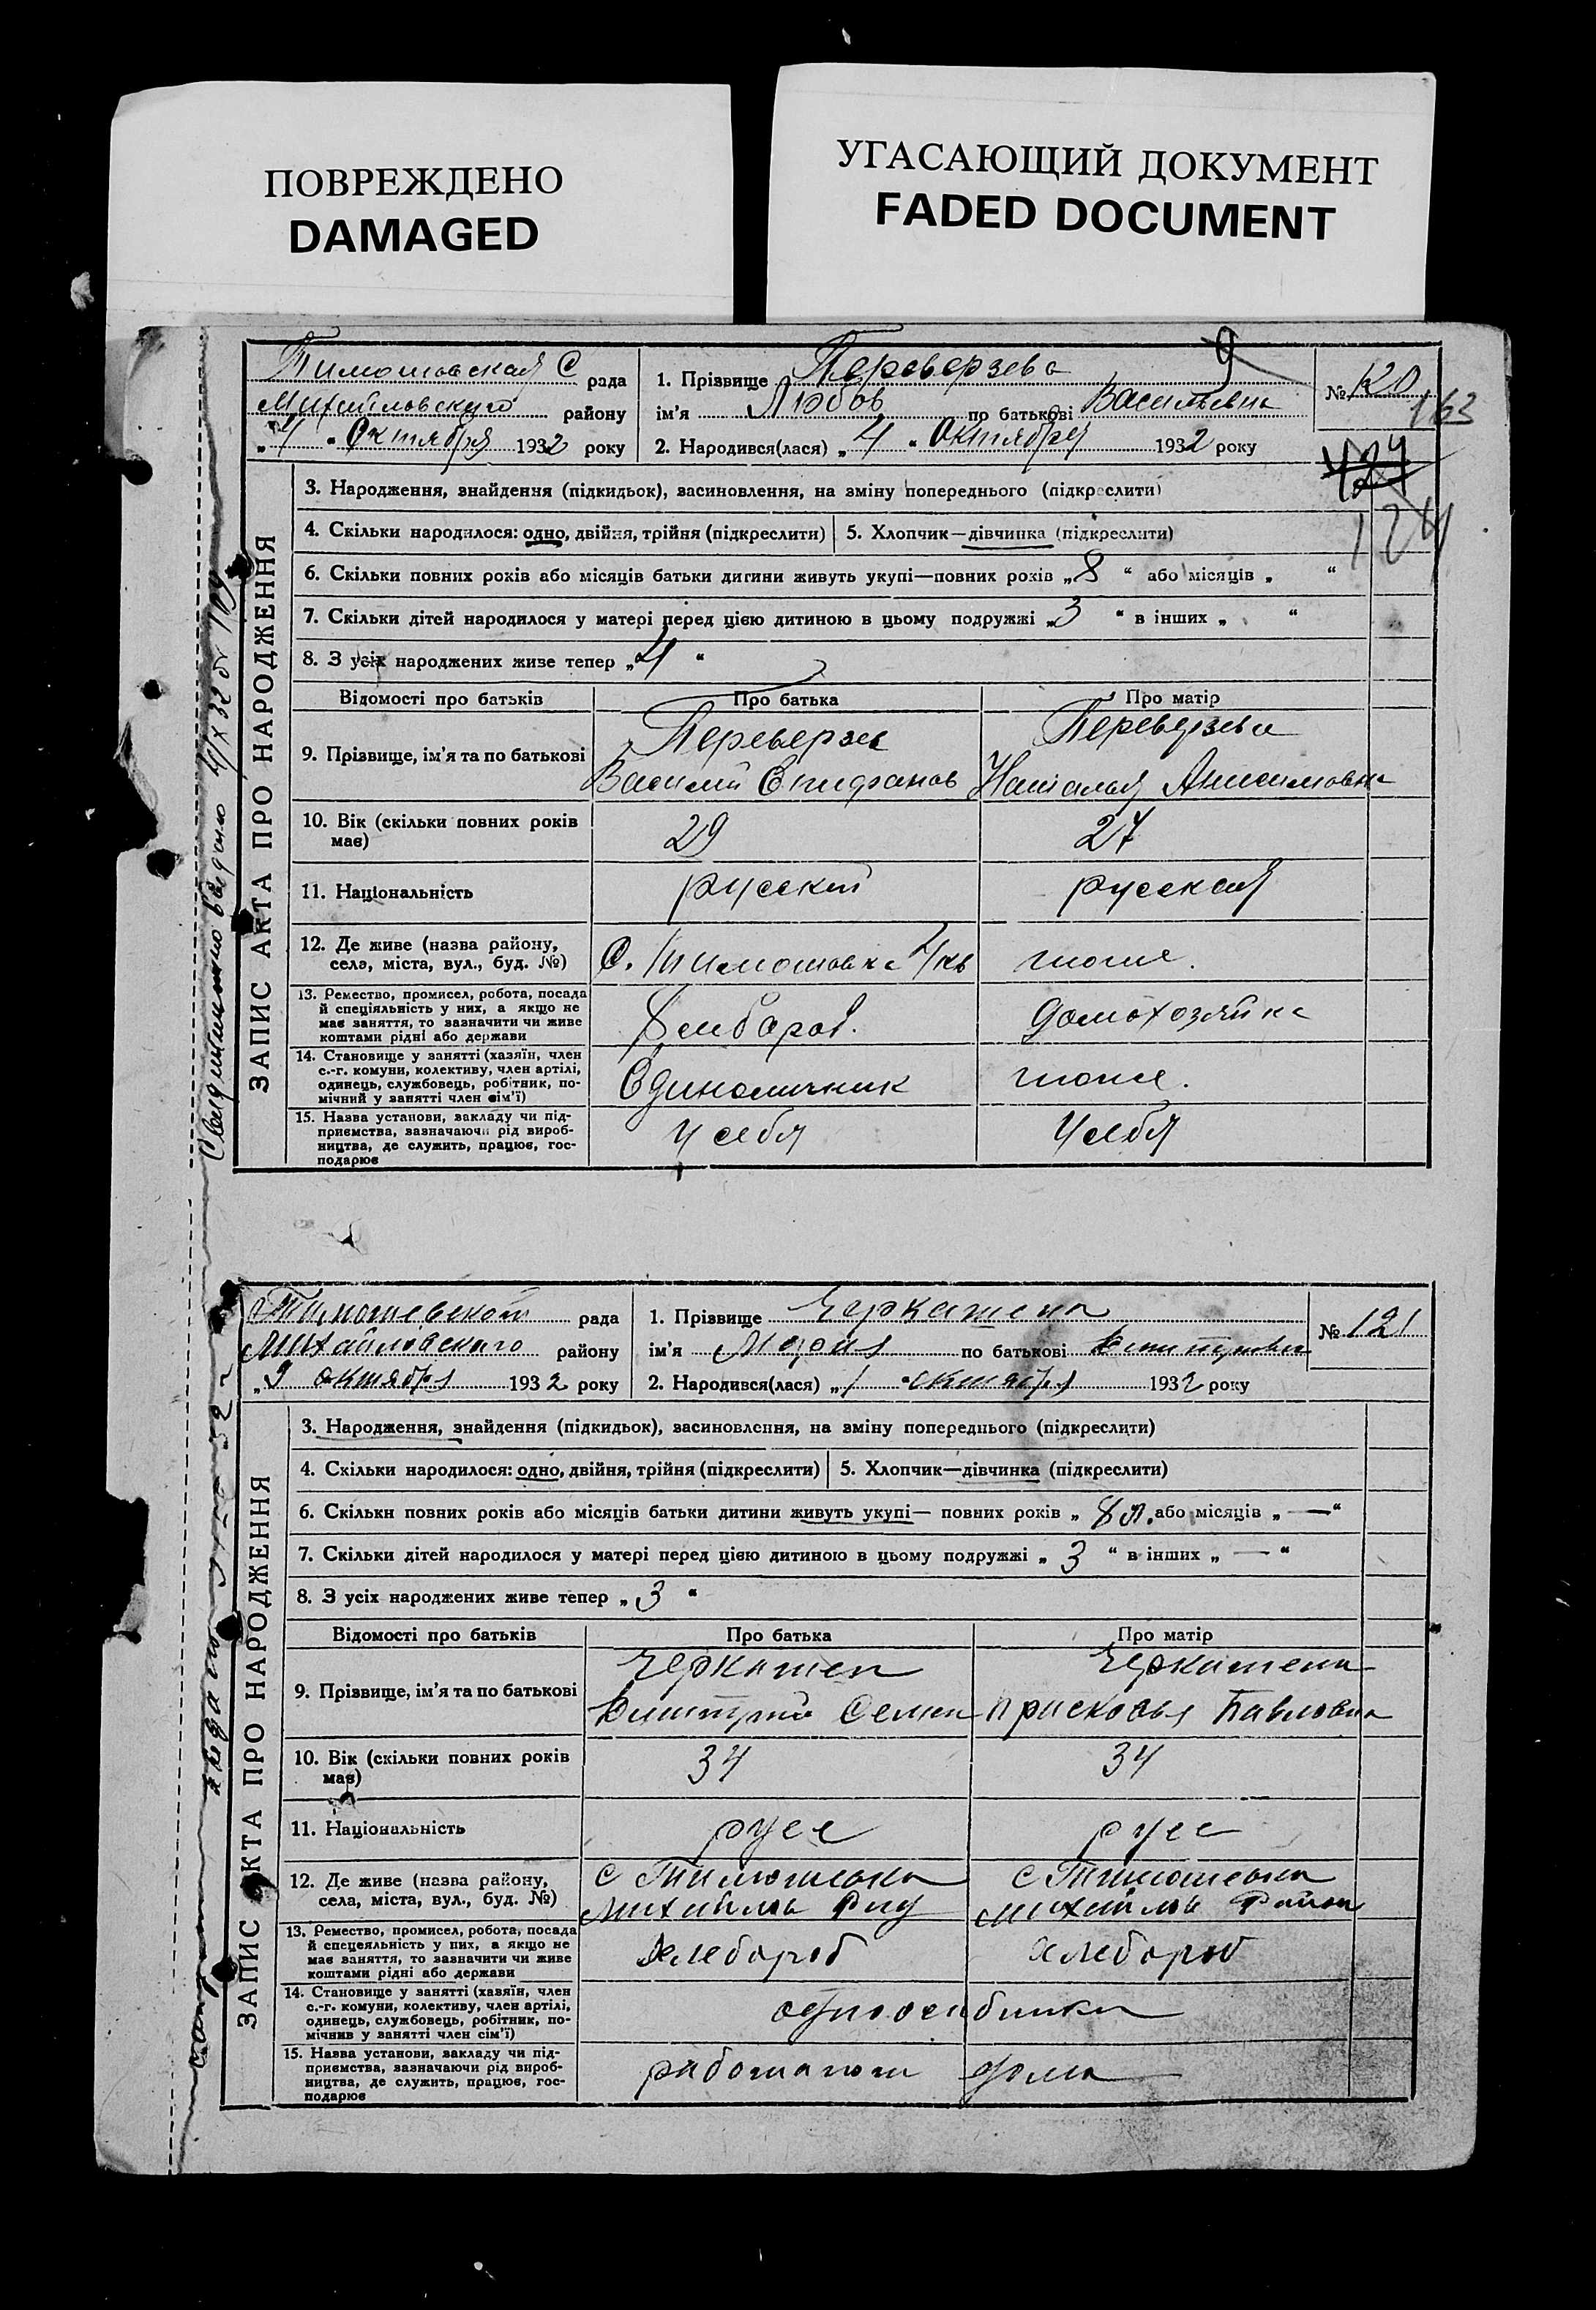 ПОВРЕЖДЕНО
DAMAGED
УГАСАЮЩИЙ ДОКУМЕНТ
FADED DOCUMENT
Тимошовская С рада
Михайловского району
„4" Октября 1932 року
1. Прізвище Переверзева
ім'я Любов по батькові Васильевна
2. Народився(лася) „4" Октября 1932 року
№ 120
163
124
3. Народження, знайдення (підкидьок), засиновлення, на зміну попереднього (підкреслити)
4. Скільки народилося: одно, двійня, трійня (підкреслити) 5. Хлопчик—дівчинка (підкреслити)
6. Скільки повних років або місяців батьки дитини живуть укупі—повних років „8" або місяців „ "
7. Скільки дітей народилося у матері перед цією дитиною в цьому подружжі „3" в інших „ "
8. З усіх народжених живе тепер „4"
ЗАПИС АКТА ПРО НАРОДЖЕННЯ
Відомості про батьків Про батька Про матір
9. Прізвище, ім'я та по батькові
Переверзев
Василий Епифанов
Переверзева
Наталья Анисимовна
10. Вік (скільки повних років
має)
29
27
11. Національність русский русская
12. Де живе (назва району,
села, міста, вул., буд. №)
С. Тимошовка
тоже.
13. Ремество, промисел, робота, посада
й спеціяльність у них, а якщо не
має заняття, то зазначити чи живе
коштами рідні або держави
домохозяйка
14. Становище у занятті (хазяїн, член
с.-г. комуни, колективу, член артілі,
одинець, службовець, робітник, по-
мічний у занятті член сім'ї)
Единоличник
тоже.
15. Назва установи, закладу чи під-
приємства, зазначаючи рід вироб-
ництва, де служить, працює, гос-
подарює
У себя
У себя
Тимошевской рада
Михайловского району
„9 октября 1932 року
1. Прізвище Черкашена
ім'я Мария по батькові
2. Народився(лася) „1" октября 1932 року
№ 121
3. Народження, знайдення (підкидьок), засиновлення, на зміну попереднього (підкреслити)
4. Скільки народилося: одно, двійня, трійня (підкреслити) 5. Хлопчик—дівчинка (підкреслити)
6. Скільки повних років або місяців батьки дитини живуть укупі— повних років „ 8 л. або місяців „ — "
7. Скільки дітей народилося у матері перед цією дитиною в цьому подружжі „ 3 " в інших „ — "
8. З усіх народжених живе тепер „ 3 "
ЗАПИС АКТА ПРО НАРОДЖЕННЯ
Відомості про батьків Про батька Про матір
9. Прізвище, ім'я та по батькові
Черкашен
Семен
Черкашена
Присковья Павловна
10. Вік (скільки повних років
має)
34
34
11. Національність русс русс
12. Де живе (назва району,
села, міста, вул., буд. №)
с Тимошевка
Михайлов
с Тимошевка
Михайлов Район
13. Ремество, промисел, робота, посада
й спецеяльність у них, а якщо не
має заняття, то зазначити чи живе
коштами рідні або держави
хлебороб
хлебороб
14. Становище у занятті (хазяїн, член
с.-г. комуни, колективу, член артілі,
одинець, службовець, робітник, по-
мічнив у занятті член сім'ї)
15. Назва установи, закладу чи під-
приємства, зазначаючи рід вироб-
ництва, де служить, працює, гос-
подарює
работают дома